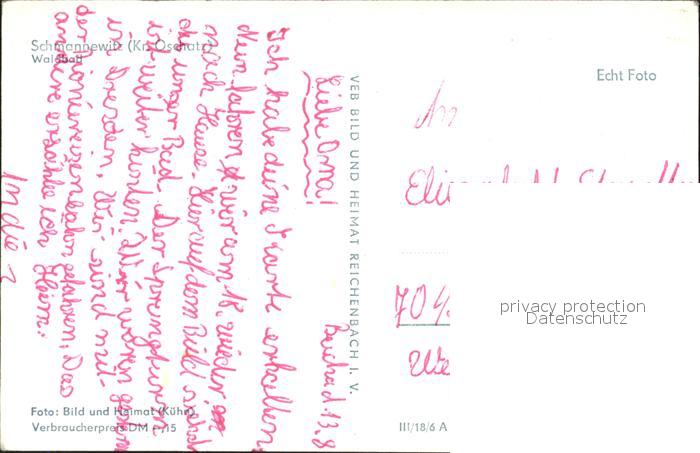 Schmannewitz (Kr. Oschatz)
Waldbad
Echt Foto
den 13.8
Liebe Oma!
Ich habe deine Karte erhalten.
Nun fahren wir am 18. wieder
nach Hause. Hier auf dem Bild siehst
du unser Bad. Der Sprungturm
ist weiter hinten. Wir waren gestern
in Dresden. Wir sind mit
der Pioniereisenbahn gefahren. Das
andere erzähle ich Heim.
VEB BILD UND HEIMAT REICHENBACH I. V.
An
704
Foto: Bild und Heimat (Kühn)
Verbraucherpreis DM -,15
III/18/6 A
privacy protection
Datenschutz